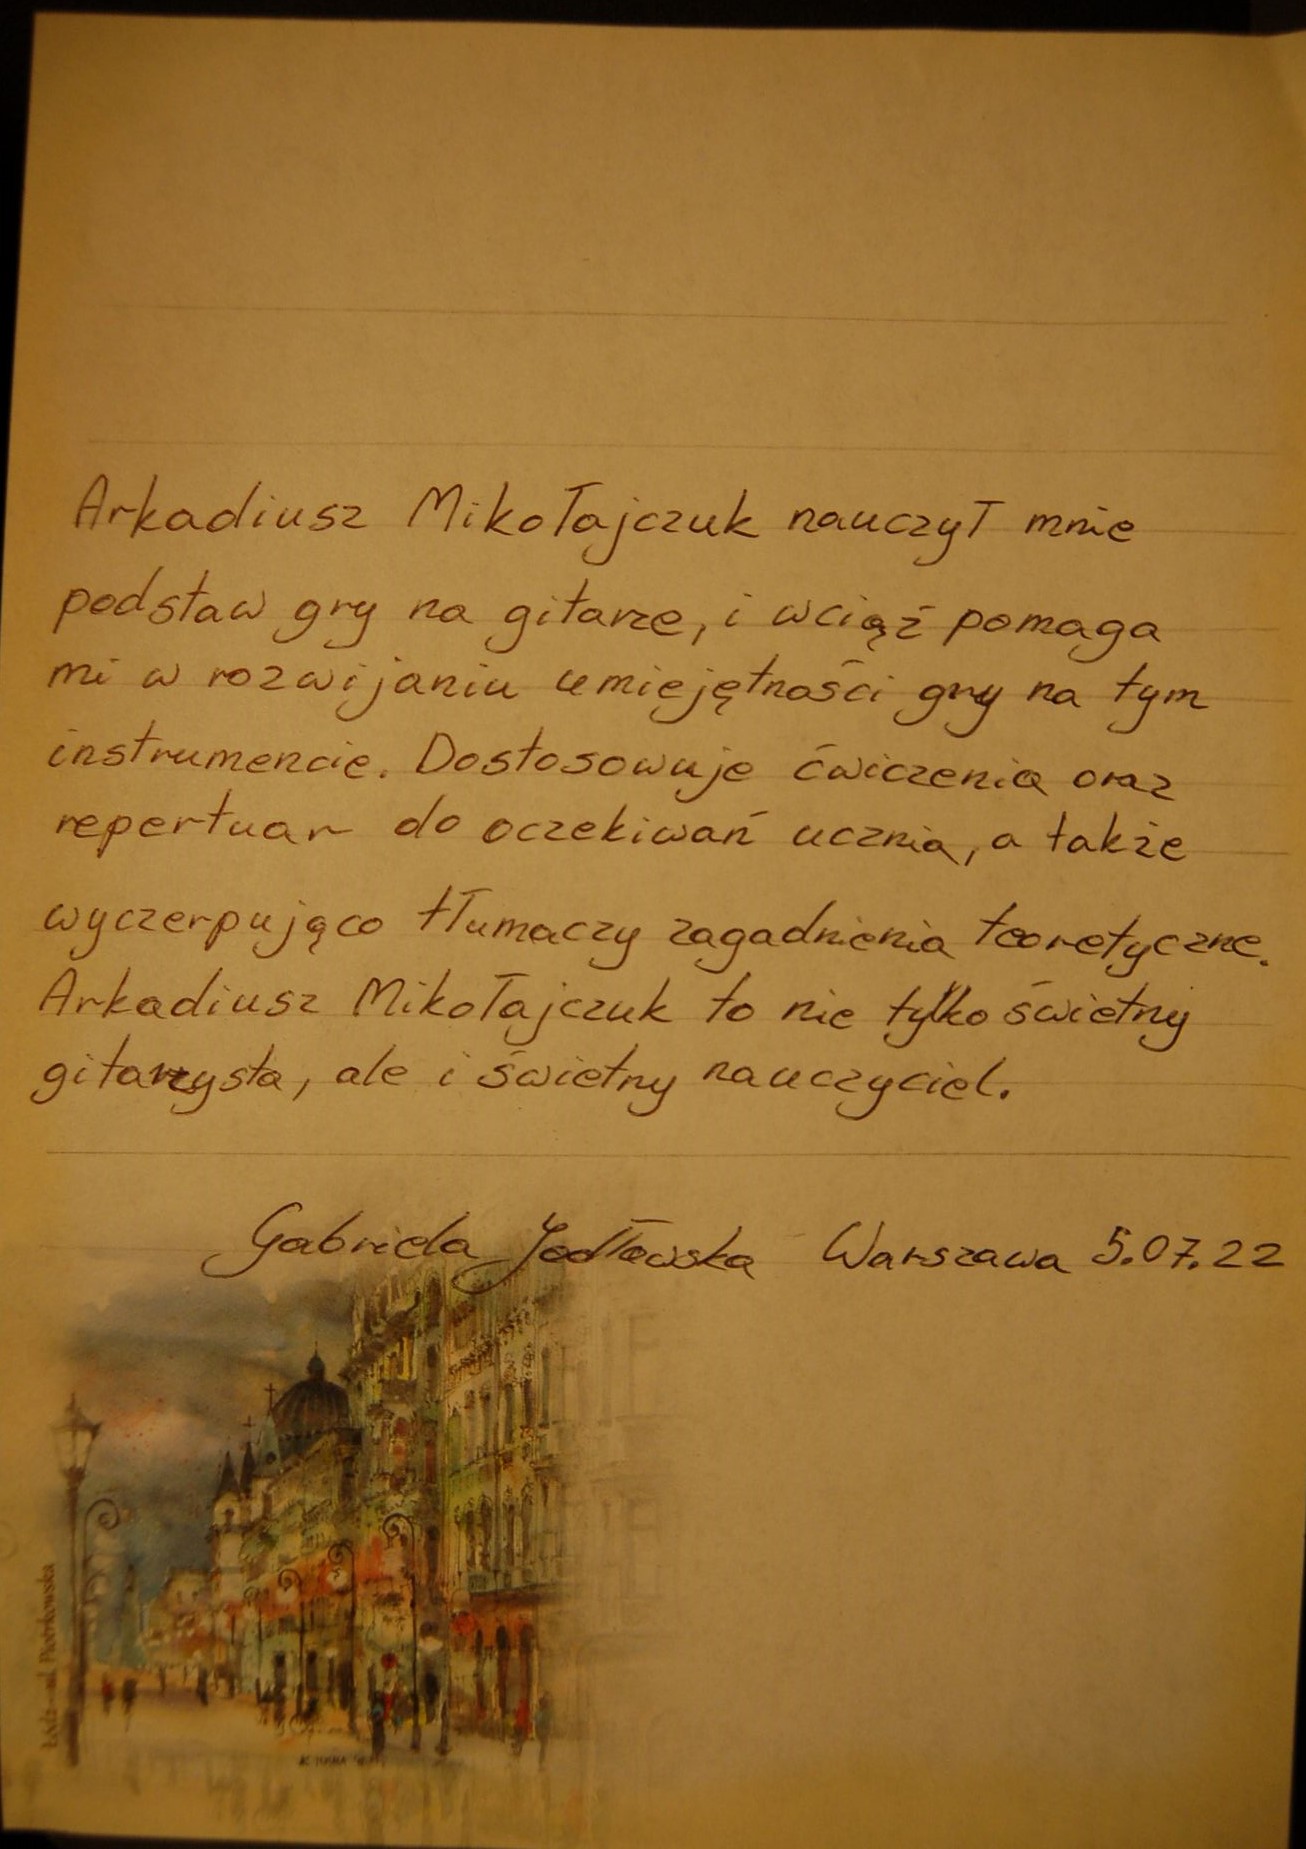 Arkadiusz Mikołajczuk nauczył mnie
podstaw gry na gitarze, i wciąż pomaga
mi w rozwijaniu umiejętności gry na tym
instrumencie. Dostosowuje ćwiczenia oraz
repertuar do oczekiwań ucznia, a także
wyczerpująco tłumaczy zagadnienia teoretyczne.
Arkadiusz Mikołajczuk to nie tylko świetny
gitarzysta, ale i świetny nauczyciel.
Gabriela Jodłowska Warszawa 5.07.22
Łódź – ul. Piotrkowska